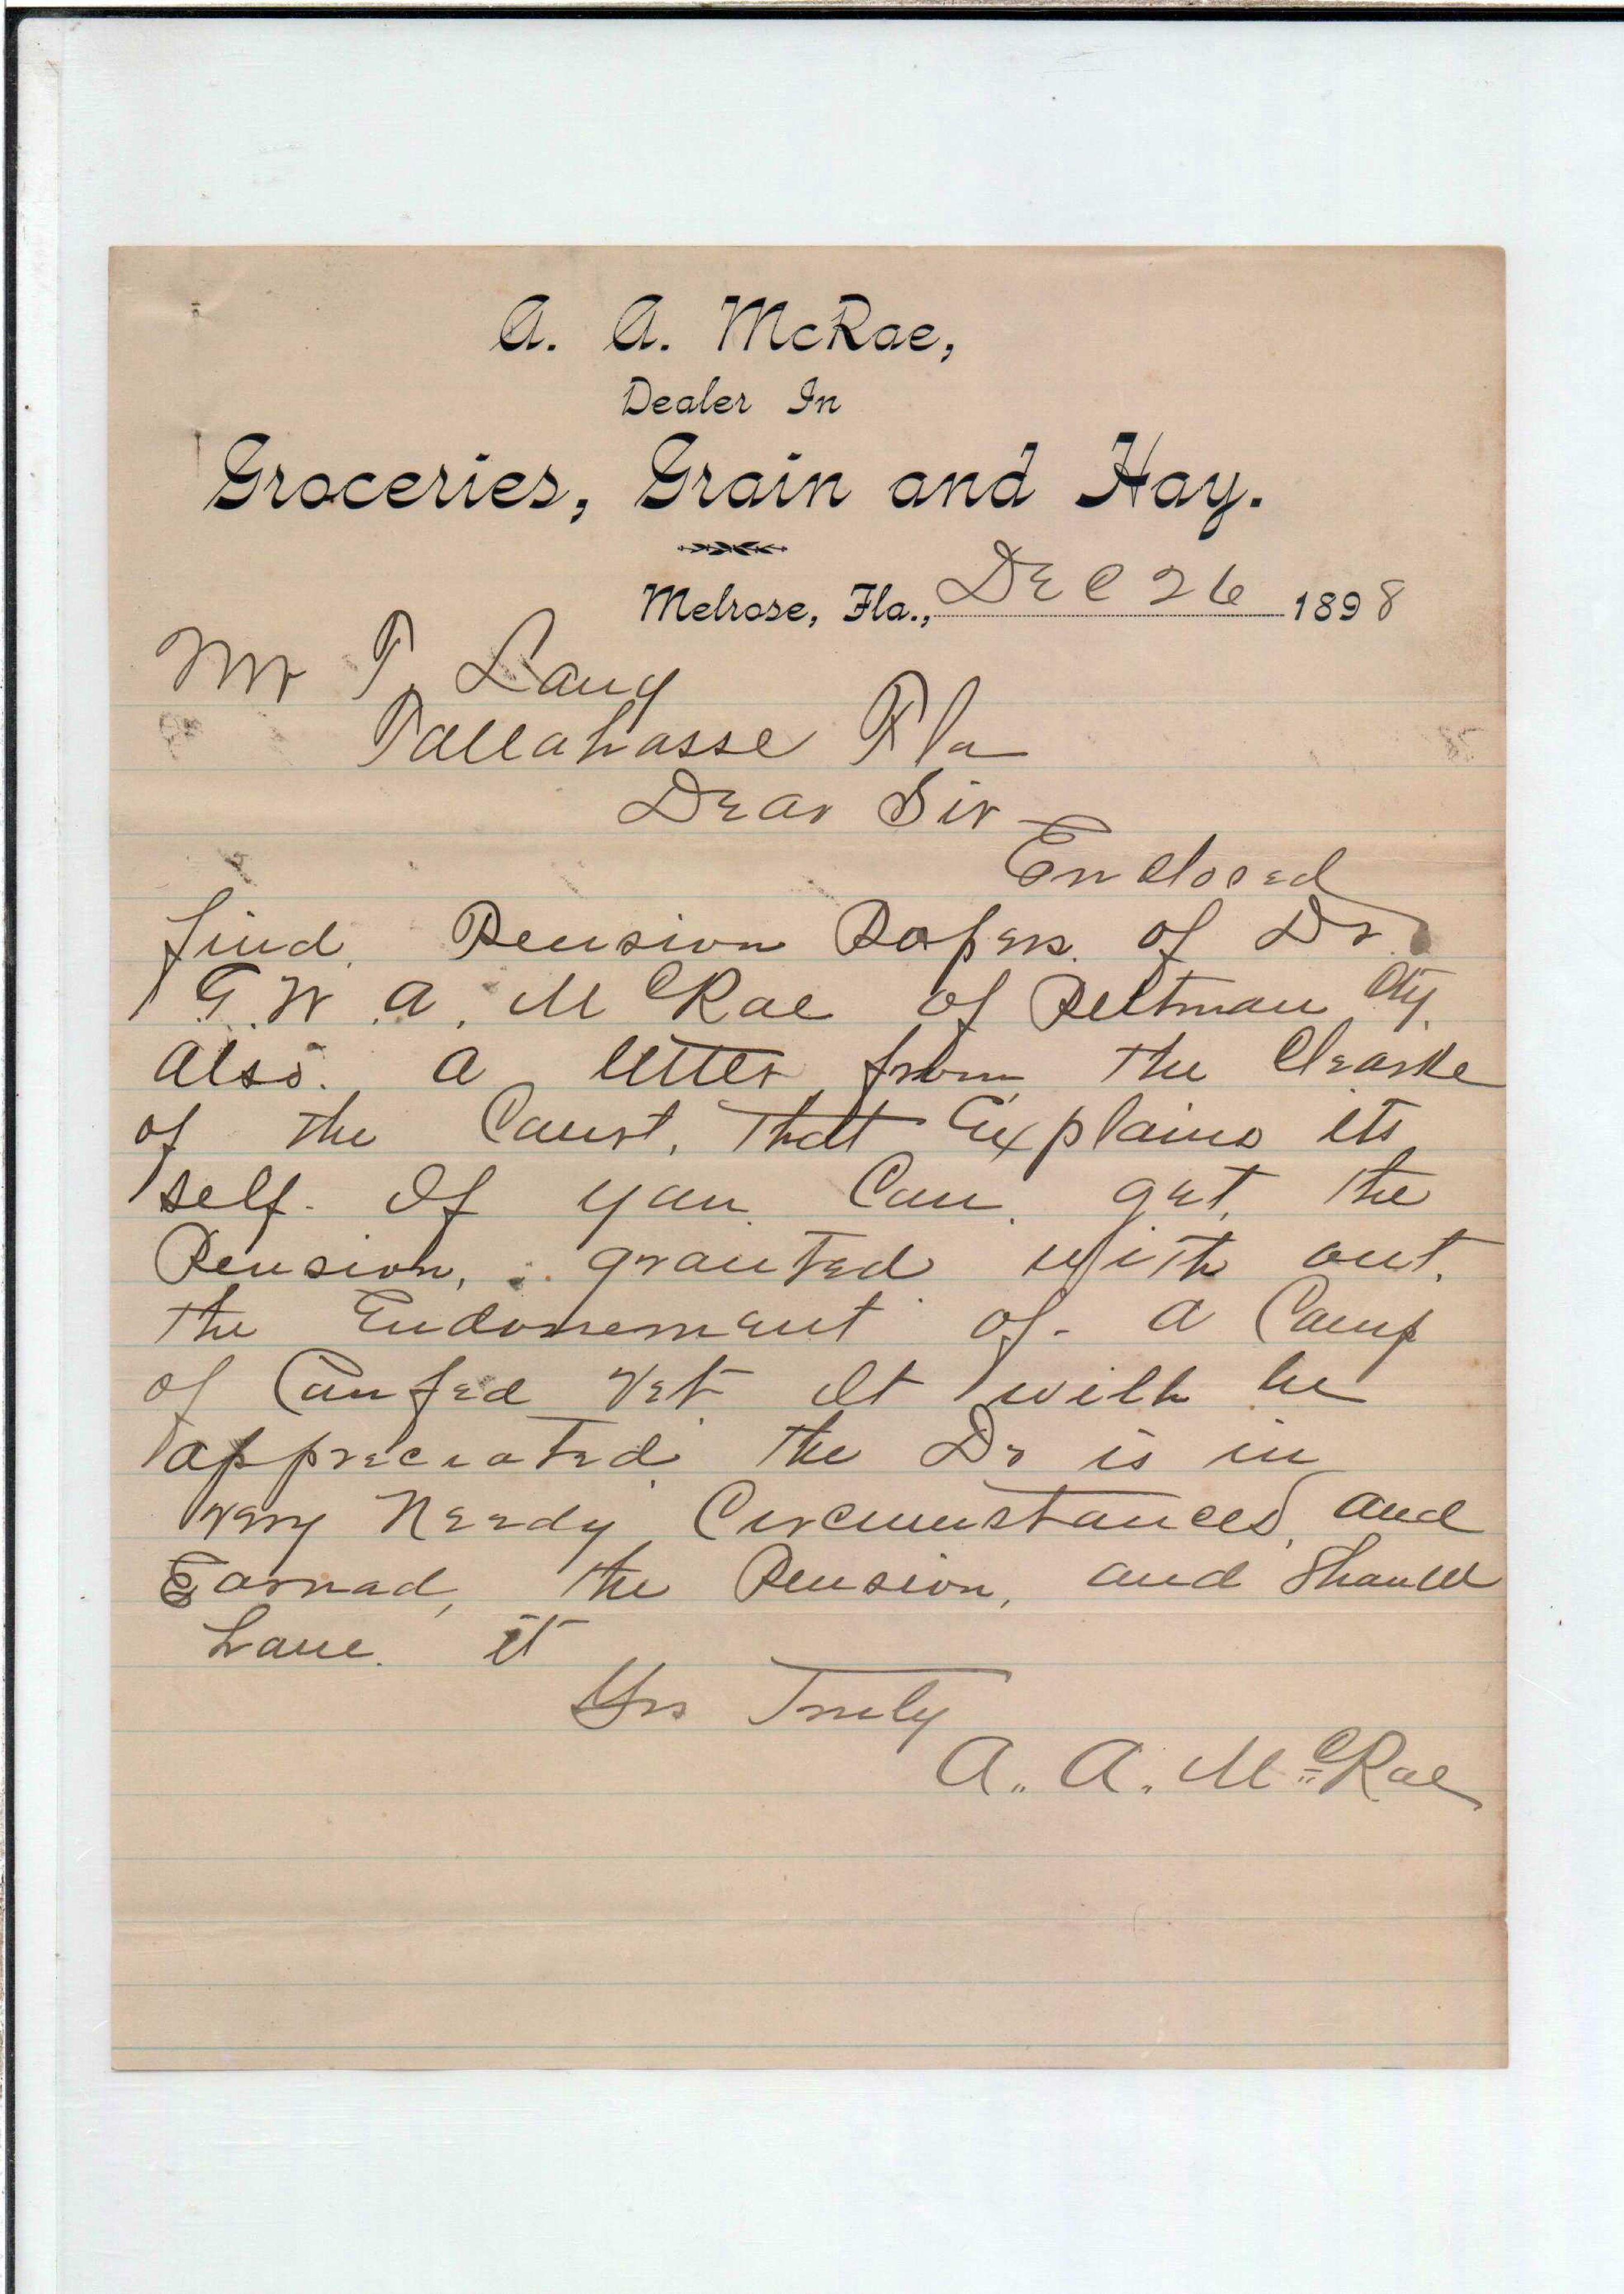 A. A. McRae,
Dealer In
Groceries, Grain and Hay.
Melrose, Fla., Dec 26 1898
Mr T. Lang
Tallahasse Fla
Dear Sir
Enclosed
find. Pension Papers. of Dr
G. W. A. McRae of Peltman City.
also. a letter from the Clearke
of the Court, that Explains its
self. If you. Can. get, the
Pension, granted with out.
the Endorsement of- a Camp
of Confed Vet It will be
appreciated the Dr is in
very Needy Circumstances, and
Earnad, the Pension, and Should
have. it
Yrs Truly
A.. A. McRae